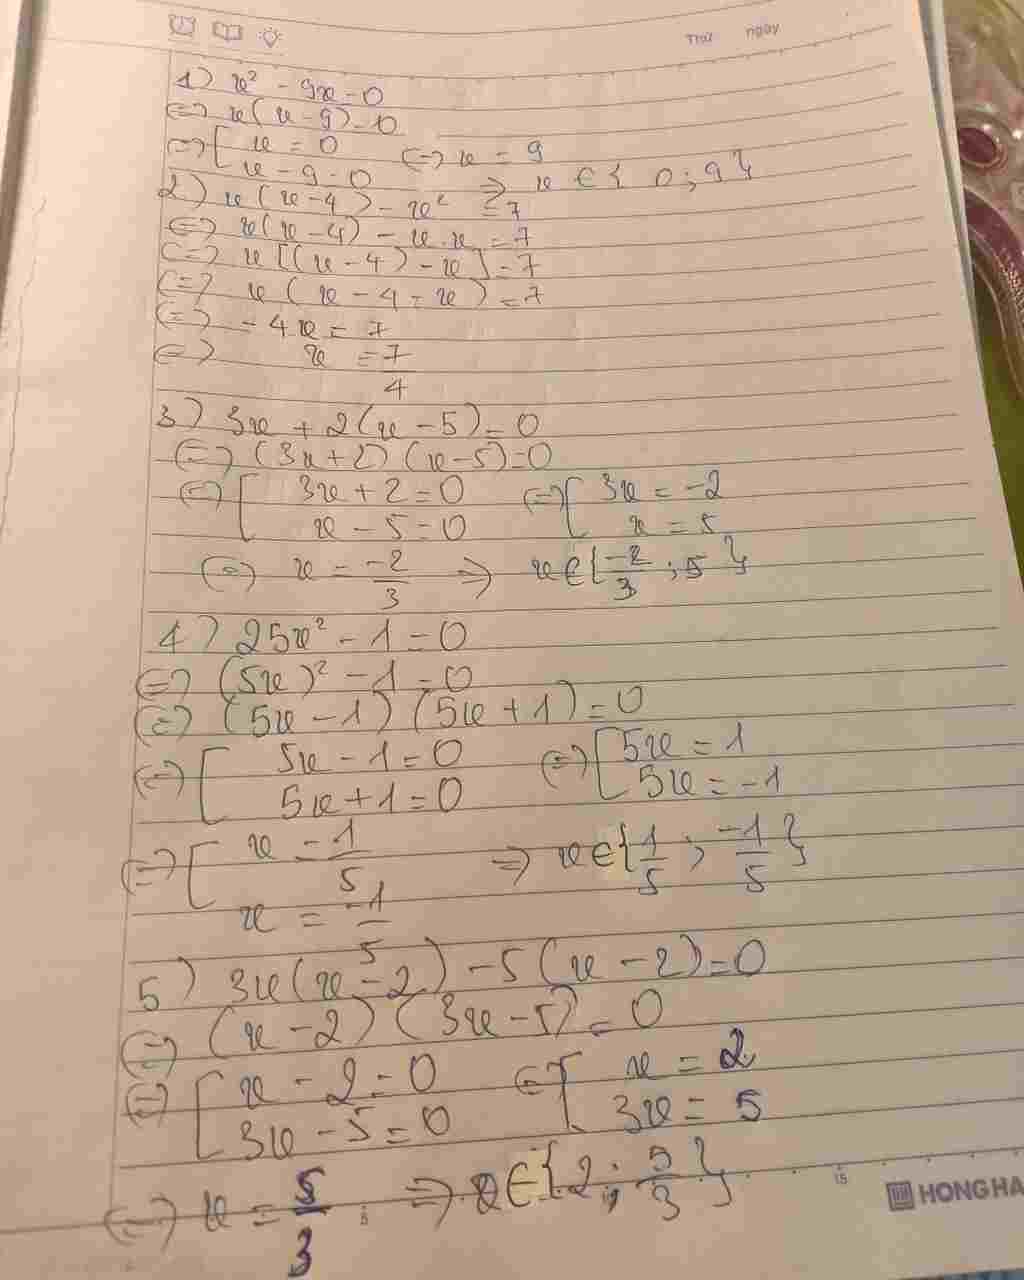 Thứ ngày
1) x² - 9x = 0
<=> x(x - 9) = 0
<=> [ x = 0 <=> x = 9
x - 9 = 0 => x ∈ { 0 ; 9 }
2) x(x - 4) - x² = 7
<=> x(x - 4) - x.x = 7
<=> x[(x - 4) - x] = 7
<=> x(x - 4 - x) = 7
<=> - 4x = 7
<=> x = 7/4
3) 3x + 2(x - 5) = 0
<=> (3x + 2)(x - 5) = 0
<=> [ 3x + 2 = 0 <=> [ 3x = -2
x - 5 = 0 x = 5
<=> x = -2/3 => x ∈ { -2/3 ; 5 }
4) 25x² - 1 = 0
<=> (5x)² - 1 = 0
<=> (5x - 1)(5x + 1) = 0
<=> [ 5x - 1 = 0 <=> [ 5x = 1
5x + 1 = 0 5x = -1
<=> [ x = 1/5 => x ∈ { 1/5 ; -1/5 }
x = -1/5
5) 3x(x - 2) - 5(x - 2) = 0
<=> (x - 2)(3x - 5) = 0
<=> [ x - 2 = 0 <=> [ x = 2
3x - 5 = 0 3x = 5
<=> x = 5/3 => x ∈ { 2 ; 5/3 }
5 15 HONG HA